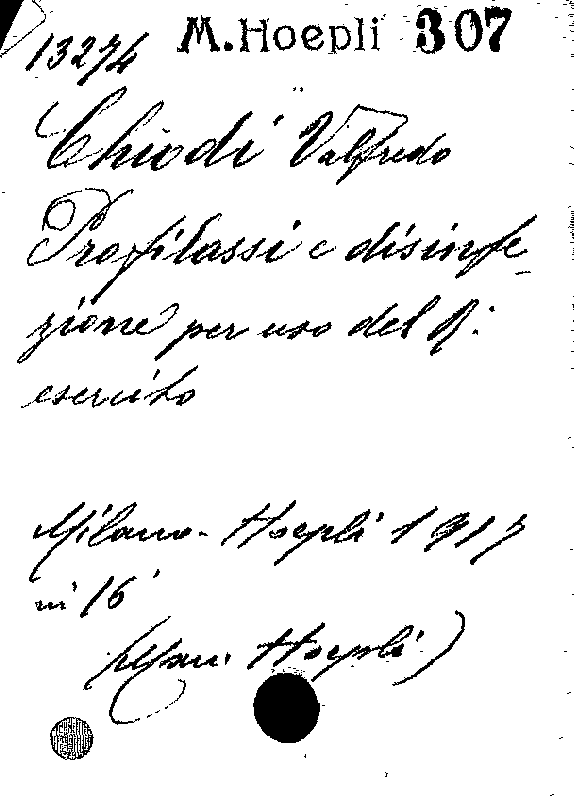 M. Hoepli 307
13274
Chiodi Valfredo
Profilassi e disinfe-
zione per uso del R:
esercito
Milano - Hoepli 1917
in 16°
(Man. Hoepli)